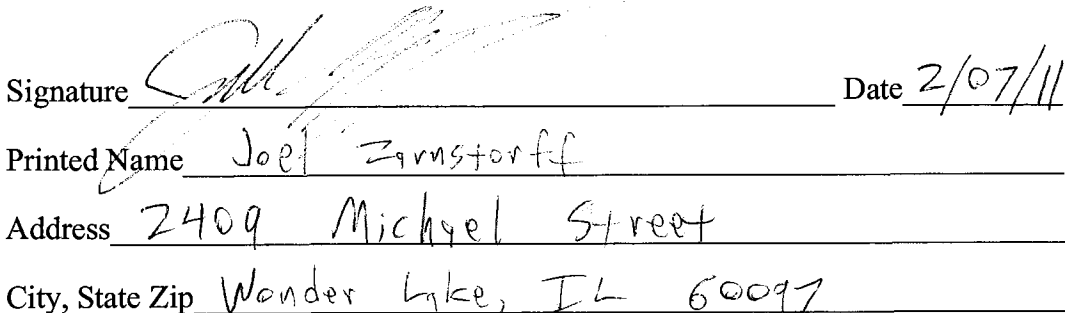 Signature Date 2/07/11
Printed Name Joel Zarnstorff
Address 2409 Michael Street
City, State Zip Wonder Lake, IL 60097